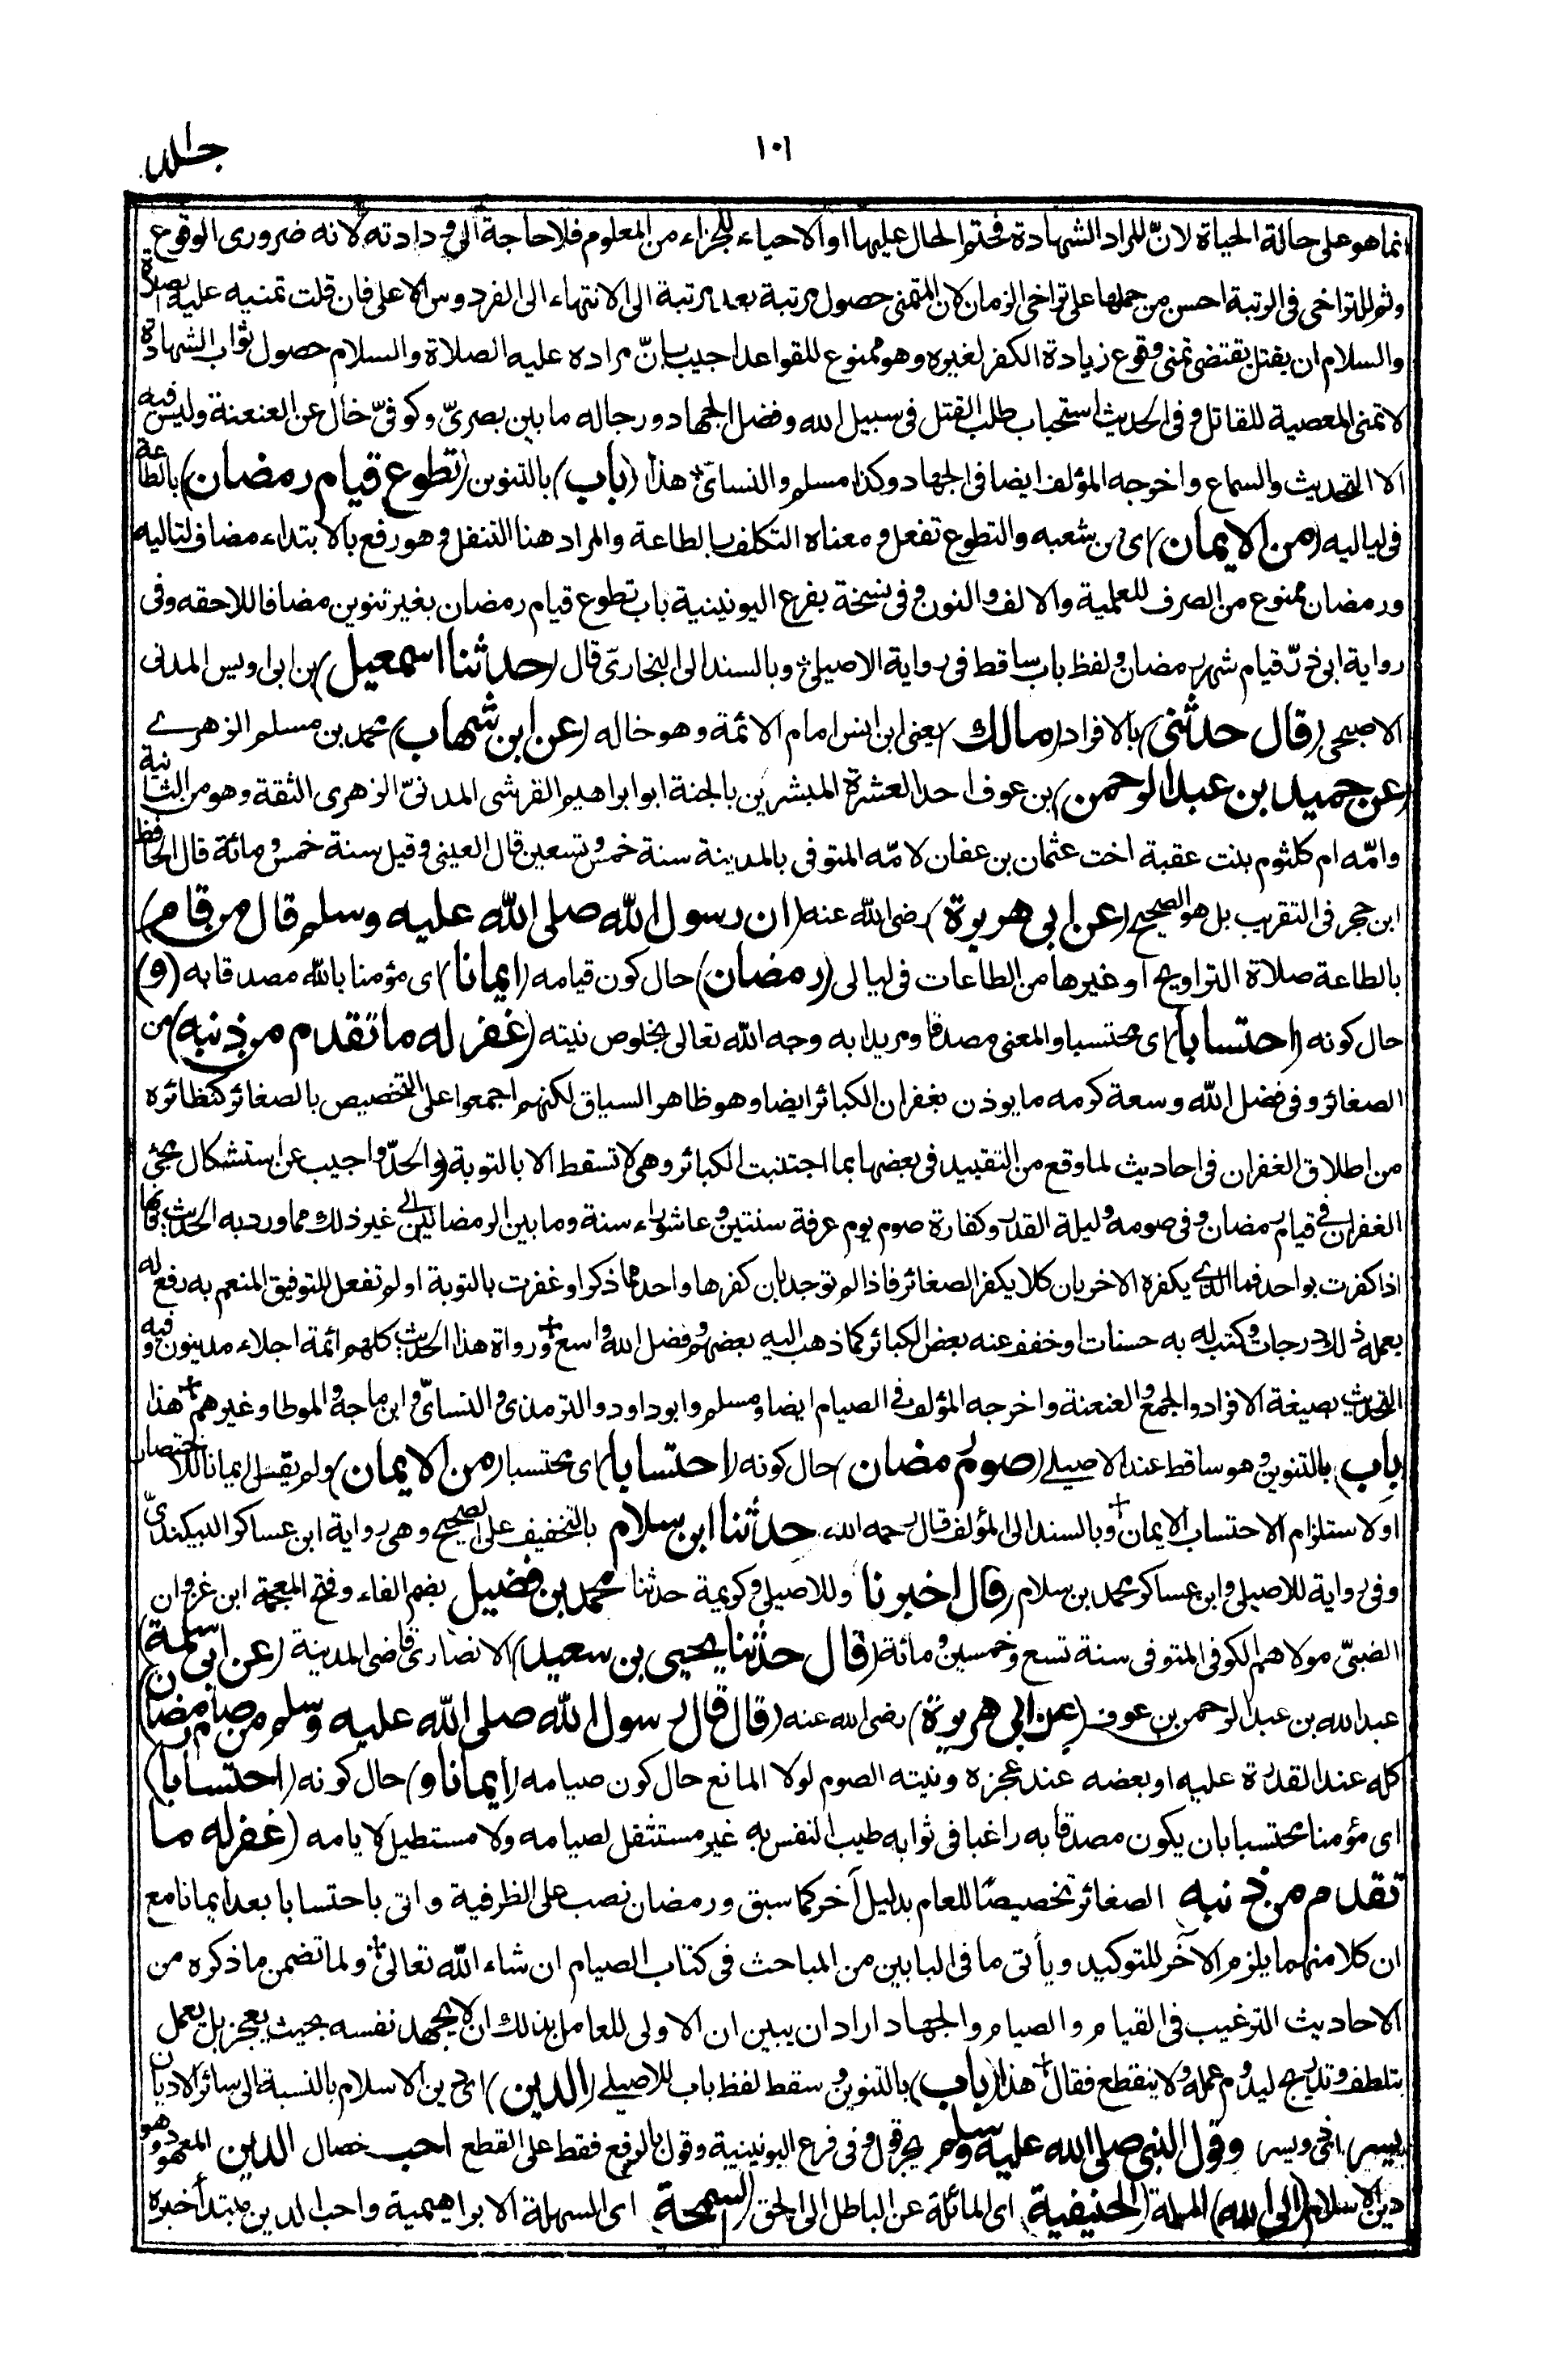 ١٠١
جلد١
انما هو على حالة الحياة لانّ المراد الشهادة فختم الحال عليها او الاحياء للجزاء من المعلوم فلا حاجة الى ودادته لانه ضرورى الوقوع
وثم للتراخى فى الرتبة احسن من حملها على تراخى الزمان لان المتمنى حصول مرتبة بعد مرتبة الى الانتهاء الى الفردوس الاعلى فان قلت تمنيه عليه الصلاة
والسلام ان يقتل يقتضى تمنى وقوع زيادة الكفر لغيره وهو ممنوع للقواعد اجيب بانّ مراده عليه الصلاة والسلام حصول ثواب الشهادة
لا تمنى المعصية للقاتل وفى الحديث استحباب طلب القتل فى سبيل الله وفضل الجهاد ورجاله ما بين بصرىّ وكوفىّ خال عن العنعنة وليس فيه
الا التحديث والسماع واخرجه المؤلف ايضا فى الجهاد وكذا مسلم والنسائى هذا (باب) بالتنوين (تطوع قيام رمضان) بالطاعة
فى لياليه (من الايمان) اى من شعبه والتطوع تفعل ومعناه التكلف بالطاعة والمراد هنا التنفل وهو رفع بالابتداء مضاف لتاليه
ورمضان ممنوع من الصرف للعلمية والالف والنون وفى نسخة بفرع اليونينية باب تطوع قيام رمضان بغير تنوين مضافا للاحقه وفى
رواية ابى ذرّ قيام شهر رمضان ولفظ باب ساقط فى رواية الاصيلى وبالسند الى البخارىّ قال (حدثنا اسمعيل) بن ابى اويس المدنى
الاصبحى (قال حدثنى) بالافراد (مالك) يعنى ابن انس امام الائمة وهو خاله (عن ابن شهاب) محمد بن مسلم الزهرے
(عن حميد بن عبد الرحمن) بن عوف احد العشرة المبشرين بالجنة ابو ابراهيم القرشى المدنىّ الزهرى الثقة وهو من الثانية
وامّه ام كلثوم بنت عقبة اخت عثمان بن عفان لامّه المتوفى بالمدينة سنة خمس وتسعين قال العينى وقيل سنة خمس ومائة قال الحافظ
ابن حجر فى التقريب بل هو الصحيح (عن ابى هريرة) رضى الله عنه (ان رسول الله صلى الله عليه وسلم قال من قام)
بالطاعة صلاة التراويح او غيرها من الطاعات فى ليالى (رمضان) حال كون قيامه (ايمانا) اى مؤمنا بالله مصدقا به (و)
حال كونه (احتسابا) اى محتسبا والمعنى مصدقا ومريدا به وجه الله تعالى بخلوص نيته (غفر له ما تقدم من ذنبه) من
الصغائر وفى فضل الله وسعة كرمه ما يوذن بغفران الكبائر ايضا وهو ظاهر السياق لكنهم اجمعوا على التخصيص بالصغائر كنظائره
من اطلاق الغفران فى احاديث لما وقع من التقييد فى بعضها بما اجتنبت الكبائر وهى لا تسقط الا بالتوبة او الحدّ واجيب عن استشكال مجئ
الغفران فى قيام رمضان وفى صومه وليلة القدر وكفارة صوم يوم عرفة سنتين وعاشوراء سنة وما بين الرمضانين الى غير ذلك مما ورد به الحديث فانها
اذا كفرت بواحد فما الذى يكفره الاخر بان كلا يكفر الصغائر فاذا لم توجد بان كفرها واحد مما ذكر او غفرت بالتوبة او لم تفعل للتوفيق المنعم به رفع له
بعمله ذلك درجات وكتب له به حسنات او خفف عنه بعض الكبائر كما ذهب اليه بعضهم وفضل الله واسع ورواة هذا الحديث كلهم ائمة اجلاء مدنيون وفيه
التحديث بصيغة الافراد والجمع والعنعنة واخرجه المؤلف فى الصيام ايضا ومسلم وابو داود والترمذى والنسائىّ وابن ماجة والموطا وغيرهم هذا
(باب) بالتنوين وهو ساقط عند الاصيلے (صوم رمضان) حال كونه (احتسابا) اى محتسبا (من الايمان) ولم يقل ايمانا للاختصار
او لاستلزام الاحتساب الايمان وبالسند الى المؤلف قال رحمه الله حدثنا ابن سلام بالتخفيف على الصحيح وهى رواية ابن عساكر البيكندىّ
وفى رواية للاصيلى وابن عساكر محمد بن سلام (قال اخبرنا وللاصيلى وكريمة حدثنا محمد بن فضيل بضم الفاء وفتح المعجمة ابن غزوان
الضبىّ مولاهم الكوفى المتوفى سنة تسع وخمسين ومائة (قال حدثنا يحيى بن سعيد) الانصارى قاضى المدينة (عن ابى سلمة)
عبد الله بن عبد الرحمن بن عوف (عن ابى هريرة) رضى الله عنه (قال قال رسول الله صلى الله عليه وسلم من صام رمضان)
كله عند القدرة عليه او بعضه عند عجزه ونيته الصوم لولا المانع حال كون صيامه (ايمانا و) حال كونه (احتسابا)
اى مؤمنا محتسبا بان يكون مصدقا به راغبا فى ثوابه طيب النفس به غير مستثقل لصيامه ولا مستطيل لايامه (غفر له ما
تقدم من ذنبه الصغائر تخصيصًا للعام بدليل آخر كما سبق ورمضان نصب على الظرفية واتى باحتسابا بعد ايمانا مع
ان كلا منهما يلزم الآخر للتوكيد ويأتى ما فى البابين من المباحث فى كتاب الصيام ان شاء الله تعالى ولما تضمن ما ذكره من
الاحاديث الترغيب فى القيام والصيام والجهاد اراد ان يبين ان الاولى للعامل بذلك ان لا يجهد نفسه بحيث يعجز بل يعمل
بتلطف وتدريج ليدوم عمله ولا ينقطع فقال هذا (باب) بالتنوين وسقط لفظ باب للاصيلے (الدين) اى دين الاسلام بالنسبة الى سائر الاديان
يسر اى ذو يسر وقول النبى صلى الله عليه وسلم بجر قول وفى فرع اليونينية وقول بالرفع فقط على القطع احب خصال الدين المعهود وهو
دين الاسلام (الى الله) الملة (الحنيفية) اى المائلة عن الباطل الى الحق (السمحة) اى السهلة الابراهيمية واحب الدين مبتدأ خبره